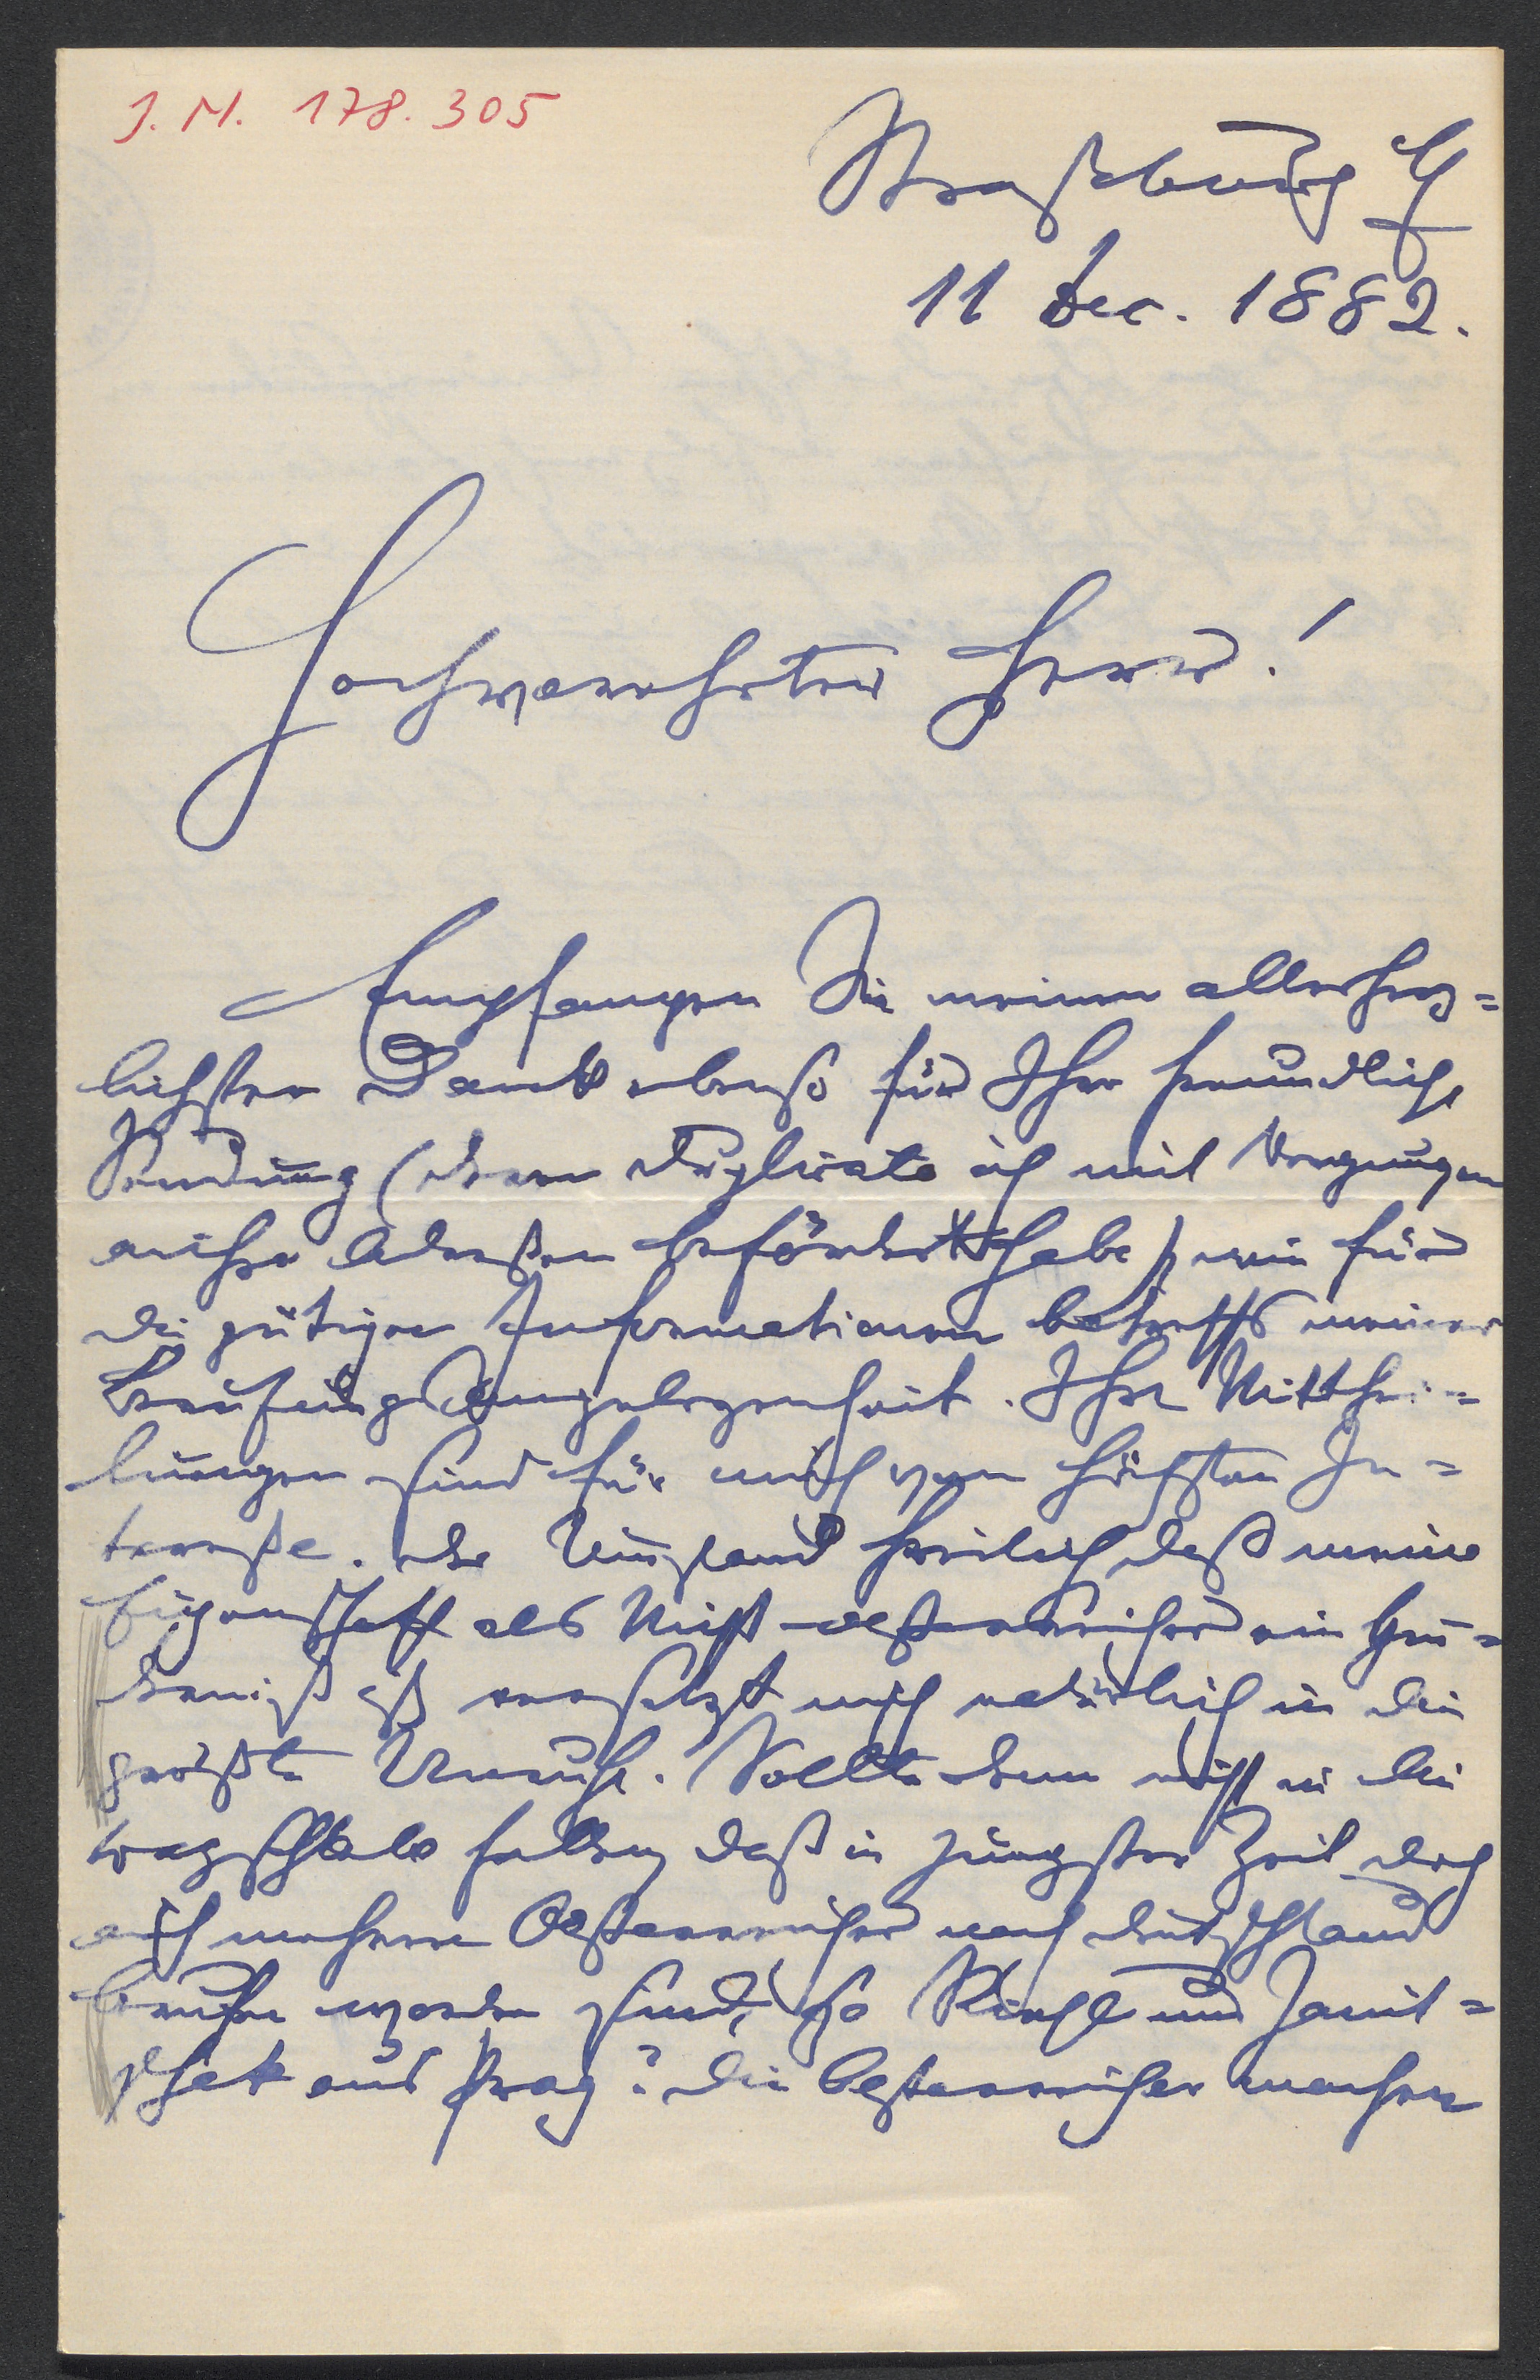 J. N. 178.305
Straßburg E
11 Dec. 1882.
Hochverehrter Herr!
Empfangen Sie meinen allerherz=
lichsten Dank ebenso für Ihre freundliche
Sendung (deren Duplicate ich mit Vergnügen
Adressen befördert habe) wie für
die gütigen Informationen betreffs meiner
Berufungsangelegenheit. Ihre Mitthei=
lungen sind für mich vom höchsten In=
teresse. Der Umstand freilich daß meine
Eigenschaft als Nicht-oesterreicher ein Hin=
derniß ist versetzt mich natürlich in die
größte Unruhe. Sollte denn nicht in die
Wagschale fallen, daß in jüngster Zeit doch
auch mehrere Oesterreicher nach Deutschland
berufen worden sind, so Kiehl und Janit=
schek aus Prag? Die Oesterreicher machen